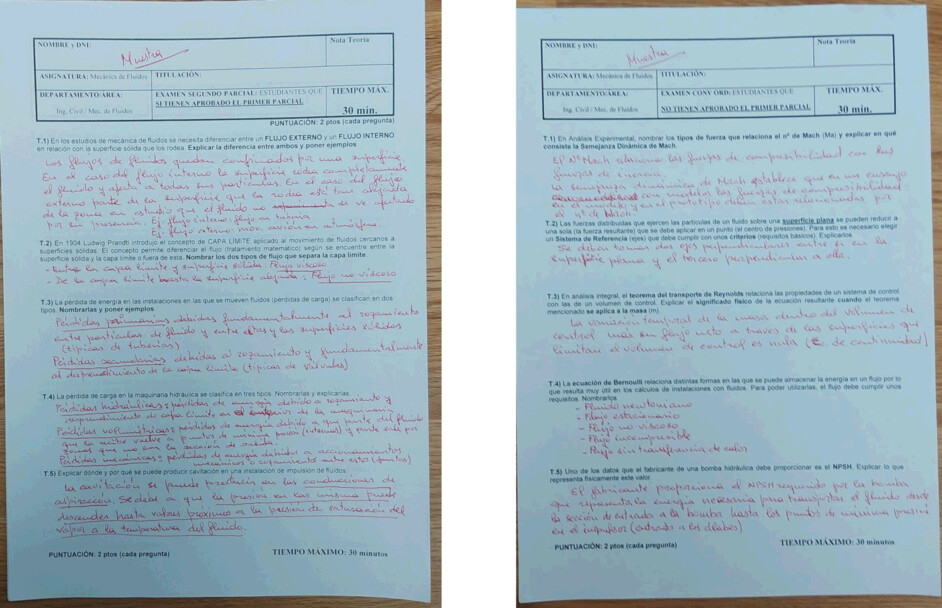 NOMBRE y DNI:
Muestra
Nota Teoría
ASIGNATURA: Mecánica de Fluidos
TITULACIÓN:
DEPARTAMENTO/ÁREA:
Ing. Civil / Mec. de Fluidos
EXAMEN SEGUNDO PARCIAL: ESTUDIANTES QUE
SI TIENEN APROBADO EL PRIMER PARCIAL
TIEMPO MÁX.
30 min.
PUNTUACIÓN: 2 ptos (cada pregunta)
T.1) En los estudios de mecánica de fluidos se necesita diferenciar entre un FLUJO EXTERNO y un FLUJO INTERNO
en relación con la superficie sólida que los rodea. Explicar la diferencia entre ambos y poner ejemplos
Los flujos de fluidos quedan confinados por una superficie.
En el caso del flujo interno la superficie rodea completamente
el fluido y afecta a todas sus partículas. En el caso del flujo
externo parte de la superficie que lo rodea está tan alejada
de la zona en estudio que el fluido no se ve afectado
por su presencia. Ej. flujo interno: flujo en tubería
Ej. flujo externo: mov. avión en atmósfera
T.2) En 1904 Ludwig Prandtl introdujo el concepto de CAPA LÍMITE aplicado al movimiento de fluidos cercanos a
superficies sólidas. El concepto permite diferenciar el flujo (tratamiento matemático) según se encuentre entre la
superficie sólida y la capa límite o fuera de esta. Nombrar los dos tipos de flujo que separa la capa límite.
- Entre la capa límite y superficie sólida: Flujo viscoso
- De la capa límite hasta la superficie alejada: Flujo no viscoso
T.3) La pérdida de energía en las instalaciones en las que se mueven fluidos (pérdidas de carga) se clasifican en dos
tipos. Nombrarlas y poner ejemplos.
Pérdidas primarias debidas fundamentalmente al rozamiento
entre partículas de fluido y entre éstas y las superficies sólidas
(típicas de tuberías)
Pérdidas secundarias debidas al rozamiento y fundamentalmente
al desprendimiento de la capa límite (típicas de válvulas)
T.4) La pérdida de carga en la maquinaria hidráulica se clasifica en tres tipos. Nombrarlas y explicarlas.
Pérdidas hidráulicas: pérdidas de energía debido a rozamiento y
desprendimiento de capa límite en el interior de la maquinaria
Pérdidas volumétricas: pérdidas de energía debido a que parte del fluido
que la recibe vuelve a puntos de mínima presión (internas) y parte sale por
zonas que no son la sección de salida.
Pérdidas mecánicas: pérdidas de energía debidas a accionamientos
mecánicos o rozamientos entre estos (juntas)
T.5) Explicar dónde y por qué se puede producir cavitación en una instalación de impulsión de fluidos.
La cavitación se puede producir en las conducciones de
aspiración. Se debe a que la presión en las mismas puede
descender hasta valores próximos a la presión de saturación del
vapor a la temperatura del fluido.
PUNTUACIÓN: 2 ptos (cada pregunta)
TIEMPO MÁXIMO: 30 minutos
NOMBRE y DNI:
Muestra
Nota Teoría
ASIGNATURA: Mecánica de Fluidos
TITULACIÓN:
DEPARTAMENTO/ÁREA:
Ing. Civil / Mec. de Fluidos
EXAMEN CONV ORD: ESTUDIANTES QUE
NO TIENEN APROBADO EL PRIMER PARCIAL
TIEMPO MÁX.
30 min.
T.1) En Análisis Experimental, nombrar los tipos de fuerza que relaciona el nº de Mach (Ma) y explicar en qué
consiste la Semejanza Dinámica de Mach.
El Nº Mach relaciona las fuerzas de compresibilidad con las
fuerzas de inercia.
La semejanza dinámica de Mach establece que en un ensayo
con modelos las fuerzas de compresibilidad
en el modelo y en el prototipo deben estar relacionadas por
el nº de Mach.
T.2) Las fuerzas distribuidas que ejercen las partículas de un fluido sobre una superficie plana se pueden reducir a
una sola (la fuerza resultante) que se debe aplicar en un punto (el centro de presiones). Para esto es necesario elegir
un Sistema de Referencia (ejes) que debe cumplir con unos criterios (requisitos básicos). Explicarlos.
Se deben tomar dos ejes perpendiculares entre sí en la
superficie plana y el tercero perpendicular a ella.
T.3) En análisis integral, el teorema del transporte de Reynolds relaciona las propiedades de un sistema de control
con las de un volumen de control. Explicar el significado físico de la ecuación resultante cuando el teorema
mencionado se aplica a la masa (m).
La variación temporal de la masa dentro del volumen de
control más su flujo neto a través de las superficies que
limitan el volumen de control es nula (Ec. de continuidad)
T.4) La ecuación de Bernoulli relaciona distintas formas en las que se puede almacenar la energía en un flujo por lo
que resulta muy útil en los cálculos de instalaciones con fluidos. Para poder utilizarlas, el flujo debe cumplir unos
requisitos. Nombrarlos.
- Fluido newtoniano
- Flujo estacionario
- Flujo no viscoso
- Flujo incompresible
- Flujo sin transferencia de calor
T.5) Uno de los datos que el fabricante de una bomba hidráulica debe proporcionar es el NPSH. Explicar lo que
representa físicamente este valor.
El fabricante proporciona el NPSH requerido por la bomba
que representa la energía necesaria para transportar el fluido desde
la sección de entrada a la bomba hasta los puntos de mínima presión
en el impulsor (entrada a los álabes)
PUNTUACIÓN: 2 ptos (cada pregunta)
TIEMPO MÁXIMO: 30 minutos